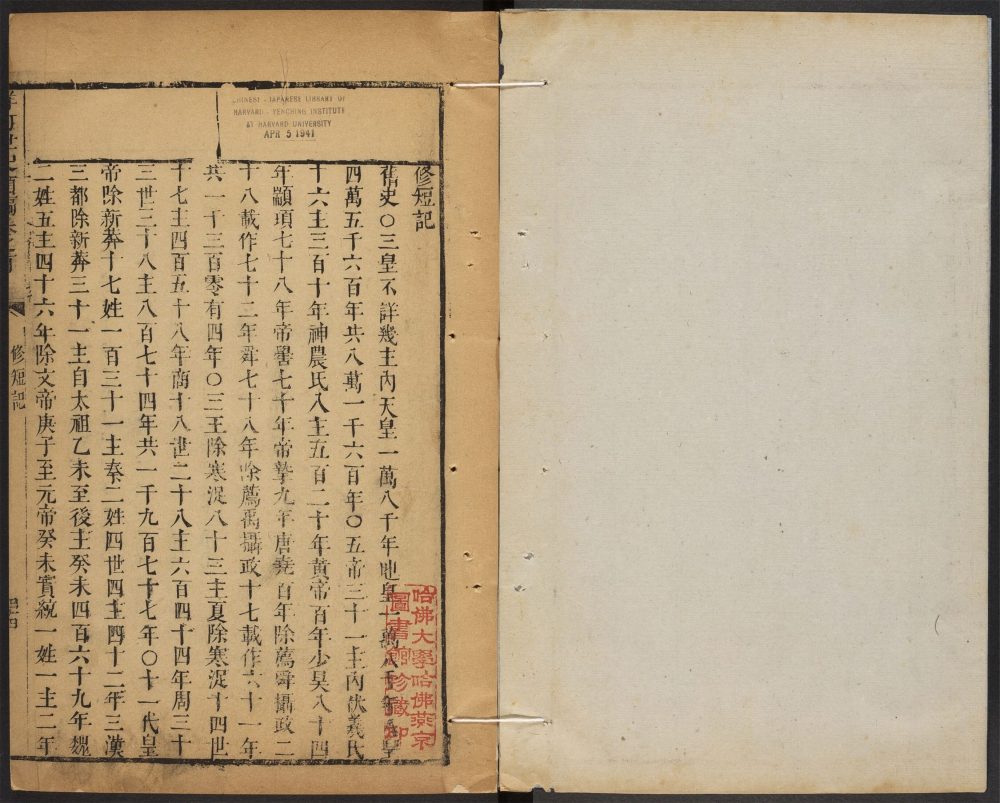 CHINESE - JAPANESE LIBRARY OF
HARVARD - YENCHING INSTITUTE
AT HARVARD UNIVERSITY
APR 5 1941
修短記
舊史○三皇不詳幾主內天皇一萬八千年地皇一萬八千年人皇
四萬五千六百年共八萬一千六百年○五帝三十一主內伏羲氏
十六主三百十年神農氏八主五百二十年黃帝百年少昊八十四
年顓頊七十八年帝嚳七十年帝摯九年唐堯百年除薦舜攝政二
十八載作七十二年舜七十八年除薦禹攝政十七載作六十一年
共一千三百零有四年○三王除寒浞八十三主夏除寒浞十四世
十七主四百五十八年商十八世二十八主六百四十四年周三十
三世三十八主八百七十四年共一千九百七十七年○十一代皇
帝除新莽十七姓一百三十一主秦二姓四世四主四十二年三漢
三都除新莽三十一主自太祖乙未至後主癸未四百六十九年魏
二姓五主四十六年除文帝庚子至元帝癸未實統一姓一主二年
修短記
哈佛大學哈佛燕京
圖書館珍藏印